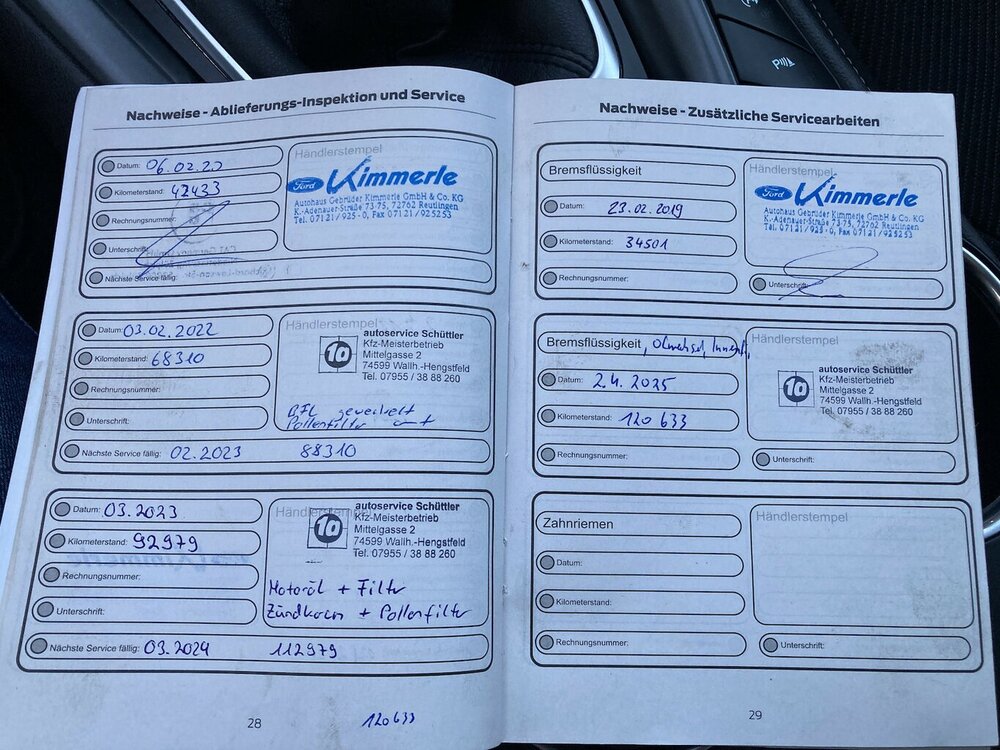 Nachweise - Ablieferungs-Inspektion und Service
Datum: 06.02.20
Kilometerstand: 42433
Rechnungsnummer:
Unterschrift:
Nächste Service fällig:
Händlerstempel
Ford Kimmerle
Autohaus Gebrüder Kimmerle GmbH & Co. KG
K.-Adenauer-Straße 73-75, 72762 Reutlingen
Tel. 07121/925-0, Fax 07121/925253
Datum: 03.02.2022
Kilometerstand: 68310
Rechnungsnummer:
Unterschrift:
Nächste Service fällig: 02.2023 88310
Händlerstempel
10
autoservice Schüttler
Kfz-Meisterbetrieb
Mittelgasse 2
74599 Wallh.-Hengstfeld
Tel. 07955 / 38 88 260
gewechselt
Pollenfilter
Datum: 03.2023
Kilometerstand: 92979
Rechnungsnummer:
Unterschrift:
Nächste Service fällig: 03.2024 112979
Händlerstempel
10
autoservice Schüttler
Kfz-Meisterbetrieb
Mittelgasse 2
74599 Wallh.-Hengstfeld
Tel. 07955 / 38 88 260
Motoröl + Filter
Zündkerzen + Pollenfilter
28
120633
Nachweise - Zusätzliche Servicearbeiten
Bremsflüssigkeit
Datum: 23.02.2019
Kilometerstand: 34501
Rechnungsnummer:
Händlerstempel
Ford Kimmerle
Autohaus Gebrüder Kimmerle GmbH & Co. KG
K.-Adenauer-Straße 73-75, 72762 Reutlingen
Tel. 07121/925-0, Fax 07121/925253
Unterschrift:
Bremsflüssigkeit, Ölwechsel,
Datum: 2.4.2025
Kilometerstand: 120633
Rechnungsnummer:
Händlerstempel
10
autoservice Schüttler
Kfz-Meisterbetrieb
Mittelgasse 2
74599 Wallh.-Hengstfeld
Tel. 07955 / 38 88 260
Unterschrift:
Zahnriemen
Datum:
Kilometerstand:
Rechnungsnummer:
Händlerstempel
Unterschrift:
29